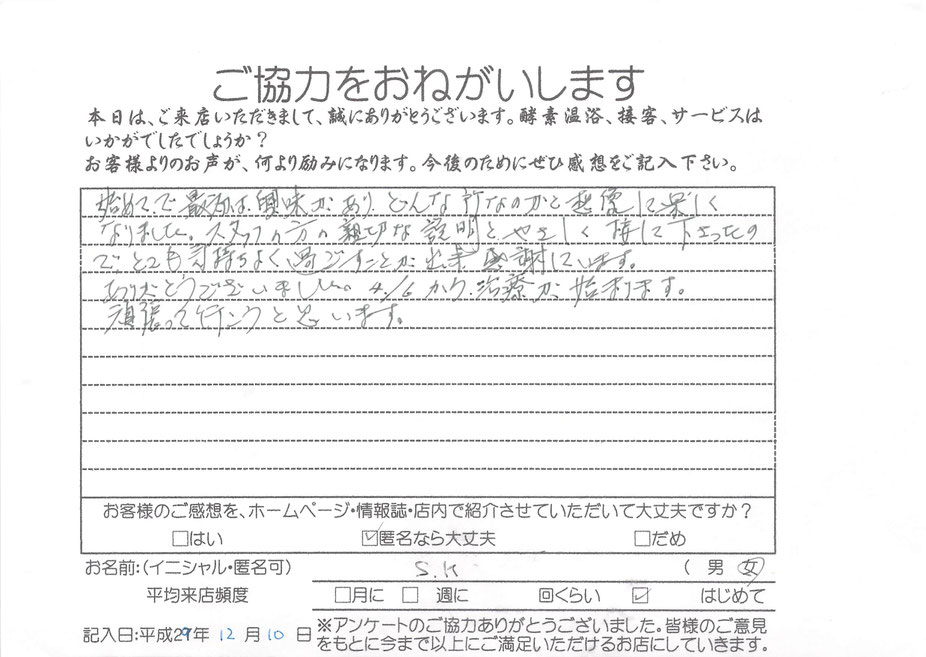 ご協力をおねがいします
本日は、ご来店いただきまして、誠にありがとうございます。酵素温浴、接客、サービスは
いかがでしたでしょうか？
お客様よりのお声が、何より励みになります。今後のためにぜひ感想をご記入下さい。
始めてで最初は興味がありどんな所なのかと想像して楽しく
なりました。スタッフの方の親切な説明とやさしく接して下さったの
で、とても気持ちよく過ごすことが出来感謝しています。
ありがとうございました。 から治療が始まります。
頑張って行こうと思います。
お客様のご感想を、ホームページ・情報誌・店内で紹介させていただいて大丈夫ですか？
□はい ☑匿名なら大丈夫 □だめ
お名前：（イニシャル・匿名可） S.K （ 男 女）
平均来店頻度 □月に □ 週に 回くらい ☑ はじめて
記入日：平成29年 12 月 10 日
※アンケートのご協力ありがとうございました。皆様のご意見
をもとに今まで以上にご満足いただけるお店にしていきます。